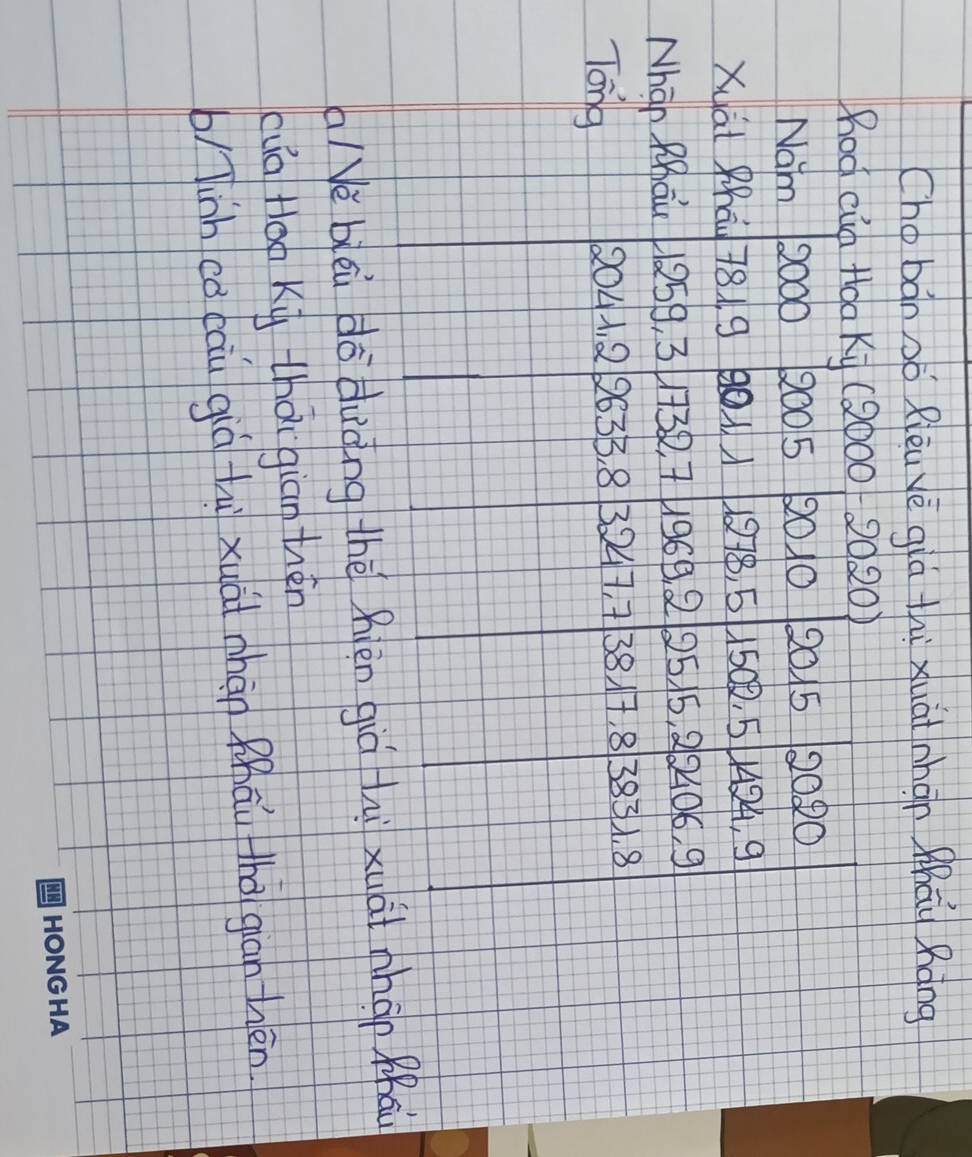 Cho bản số liệu về giá trị xuất nhập khẩu hàng
hoá của Hoa Kỳ (2000 - 2020)
Năm 2000 2005 2010 2015 2020
Xuất khẩu 781,9 901,1 1278,5 1502,5 1424,9
Nhập khẩu 1259,3 1732,7 1969,2 2515,2 2406,9
Tổng 2041,2 2633,8 3247,7 3817,8 3831,8
a/ Vẽ biểu đồ đường thể hiện giá trị xuất nhập khẩu
của Hoa Kỳ thời gian trên
b/ Tính cơ cấu giá trị xuất nhập khẩu thời gian trên.
HH HONG HA